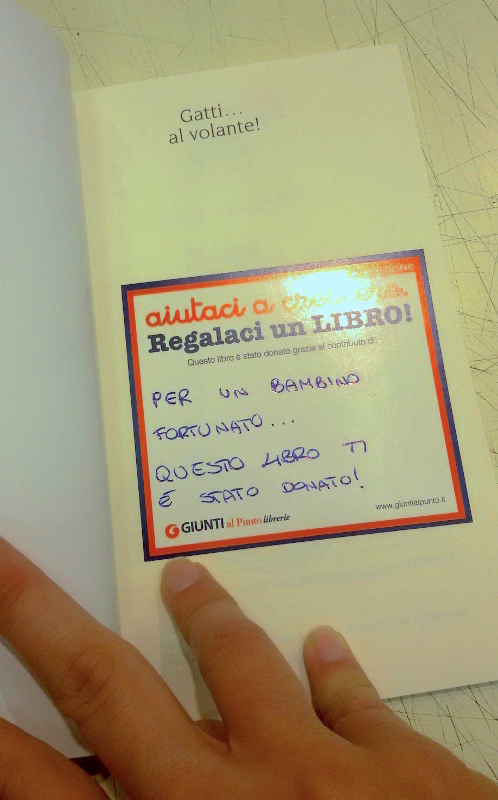 Gatti...
al volante!
aiutaci a crescere.
Regalaci un LIBRO!
Questo libro è stato donato grazie al contributo di:
PER UN BAMBINO
FORTUNATO...
QUESTO LIBRO TI
È STATO DONATO!
GIUNTI al Punto librerie
www.giuntialpunto.it